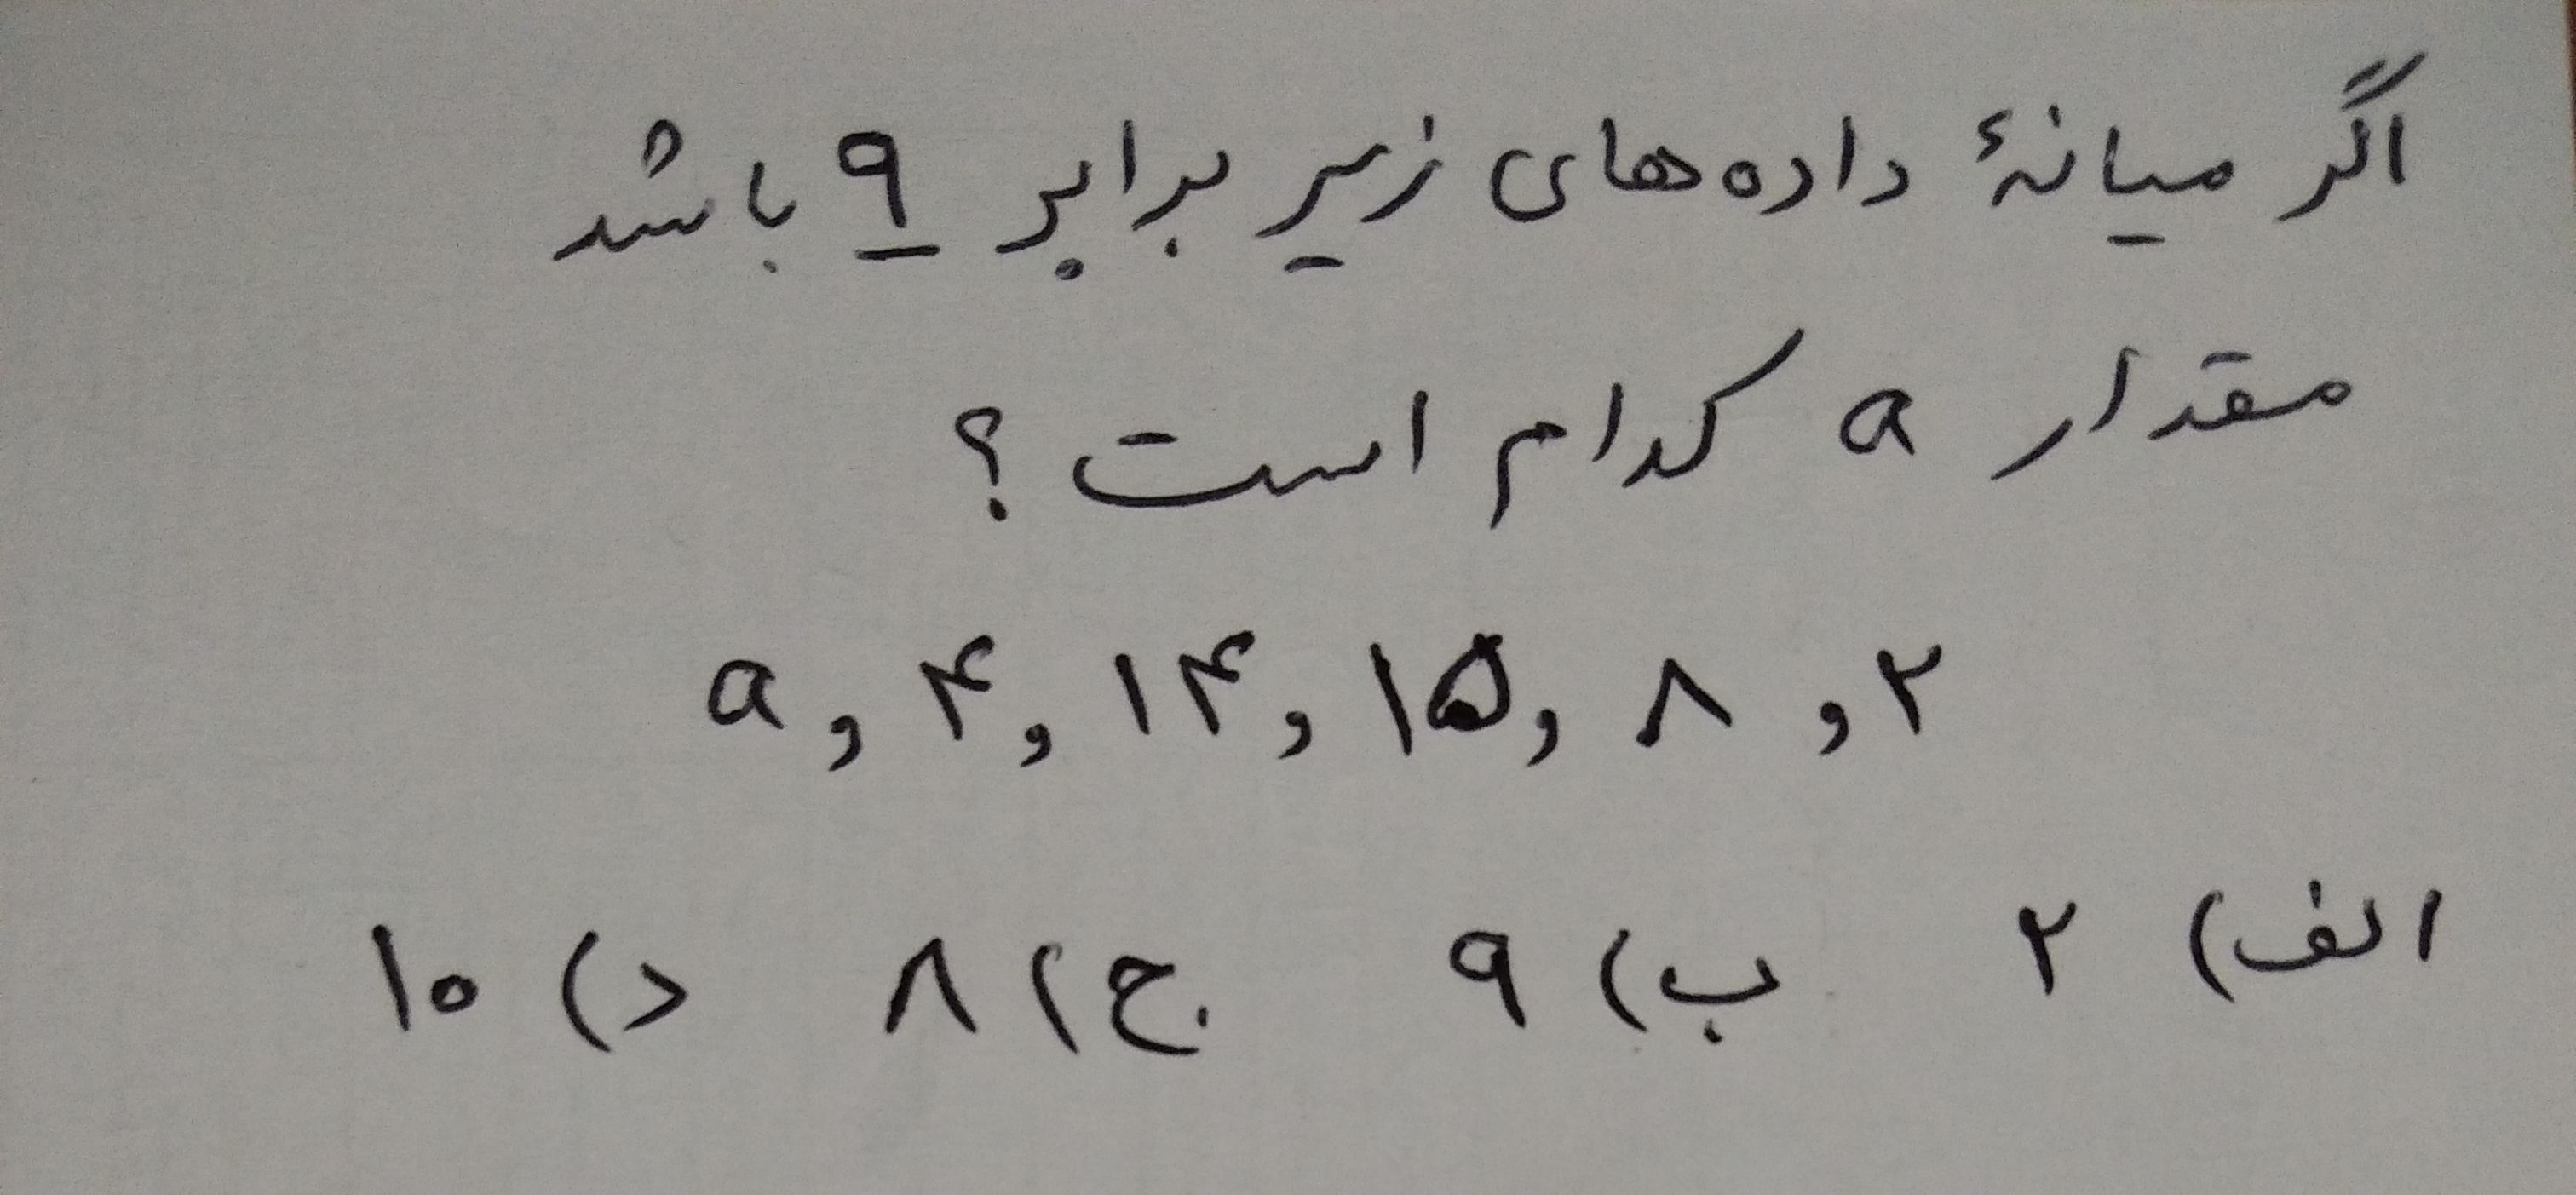 اگر میانهٔ داده‌های زیر برابر ۹ باشد
مقدار a کدام است ؟
a , ۴ , ۱۴ , ۱۵ , ۸ , ۲
الف) ۲ ب) ۹ ج) ۸ د) ۱۰